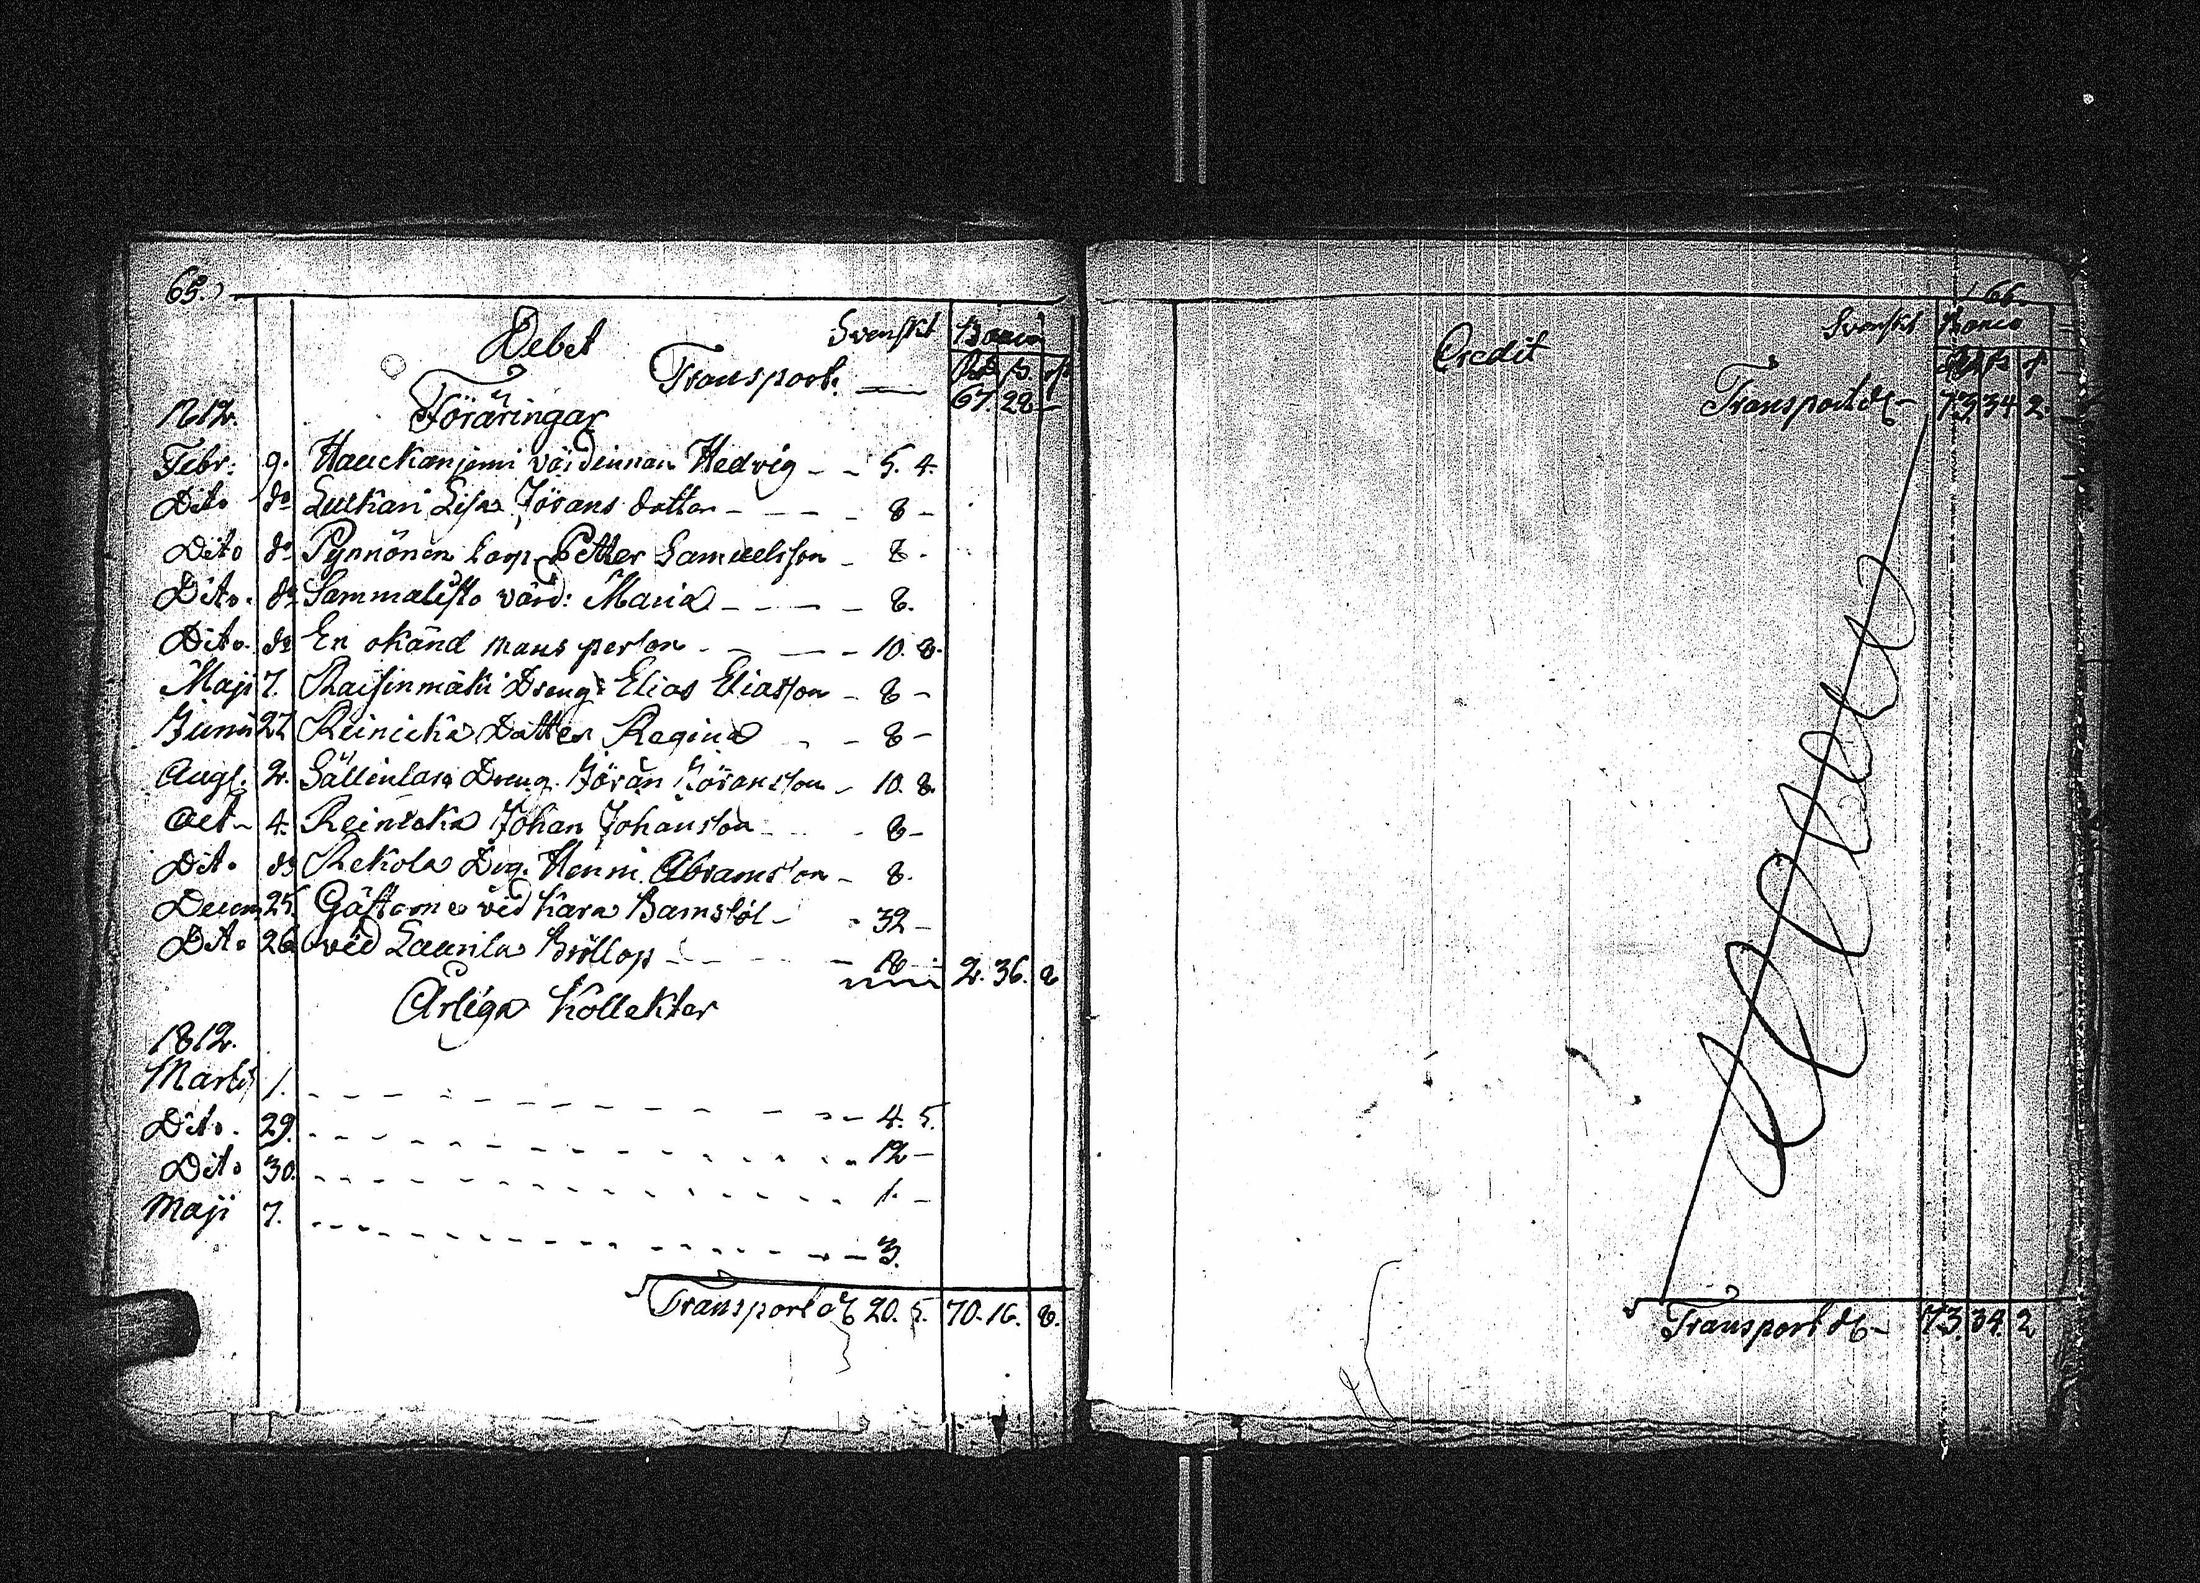 65.
Debet Svenskt Banco
Transport. — Rd ß. rp
1812. Föräringar 67. 28 —
Febr: 9. Hauckanjemi värdinnan Hedvig - - 5. 4.
Dito do Luckari Lisa Jörans dotter - - - - 8 -
Dito do Pynnönen Petter Samuelsson - 8.
Dito. do Sammalisto värd: Maria - - - - 8.
Dito. do En okänd mans person - - - - 10. 8.
Maji 7. Raisinmäki Dreng: Elias Eliasson - 8 -
Junii 27 Reinicka Dotter Regina - - 8 -
Augt. 2. Sällinlara Dreng. Jöran Jöransson - 10. 8.
Oct - 4. Reinicka Johan Johansson - - 8 -
Dito do Rekola Drg. Henric Abramsson - 8.
Decem 25. Gästerne vid Kara Barnsöl - - 32 -
Dito 26 vid Laurila Bröllop - - - - 2. 36. 8
Årliga Kollekter
1812.
Martii 1. - - - - 4. 5.
Dito. 29. - - - - 12 -
Dito 30. - - - - 1. -
Maji 7. - - - - 3.
Transport 20. 5. 70. 16. 8.
66.
Credit Svenskt Banco
Transport - 73. 34. 2.
Transport - 73. 34. 2